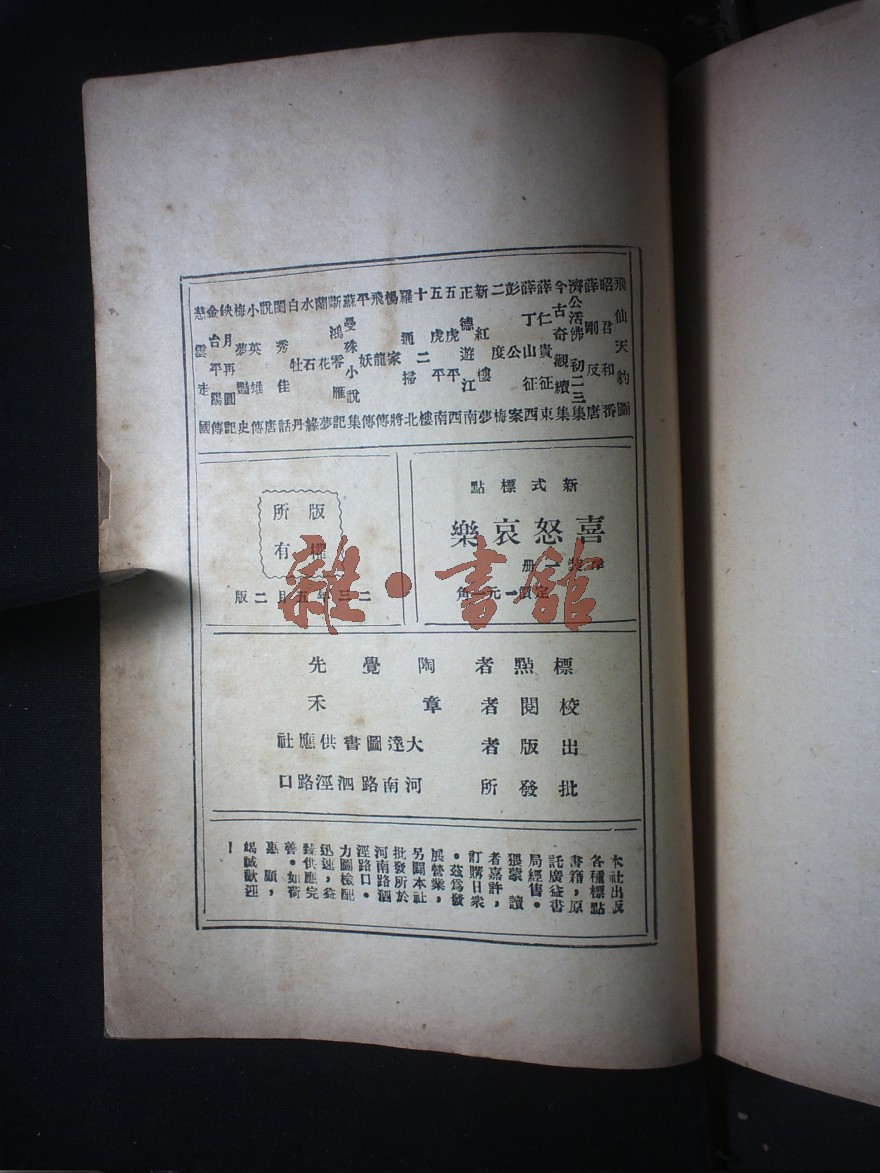 飛仙天豹圖
昭君和番
薛剛反唐
濟公活佛初二三集
今古奇觀續集
薛仁貴征東
薛丁山征西
彭公案
二度梅
新紅樓夢
正德遊江南
五虎平西
五虎平南
十二樓
羅通掃北
楊家將
飛龍傳
平妖傳
蘇曼殊小說集
斷鴻零雁記
蘭花夢
水石緣
白牡丹
閨秀佳話
說唐
小英雄傳
梅夢豔史
缺月再圓記
金台平陽傳
慈雲走國
新式標點
喜怒哀樂
裝一册
定價一元一角
版權
所有
二三年五月二版
雜·書舘
標點者 陶覺先
校閱者 章禾
出版者 大達圖書供應社
批發所 河南路泗涇路口
本社出版
各種標點
書籍，原
託廣益書
局經售。
猥蒙讀
者嘉許，
訂購日衆
。茲爲發
展營業，
另闢本社
批發所於
河南路泗
涇路口。
力圖檢配
迅速，益
臻供應完
善。如荷
惠顧，
竭誠歡迎
！